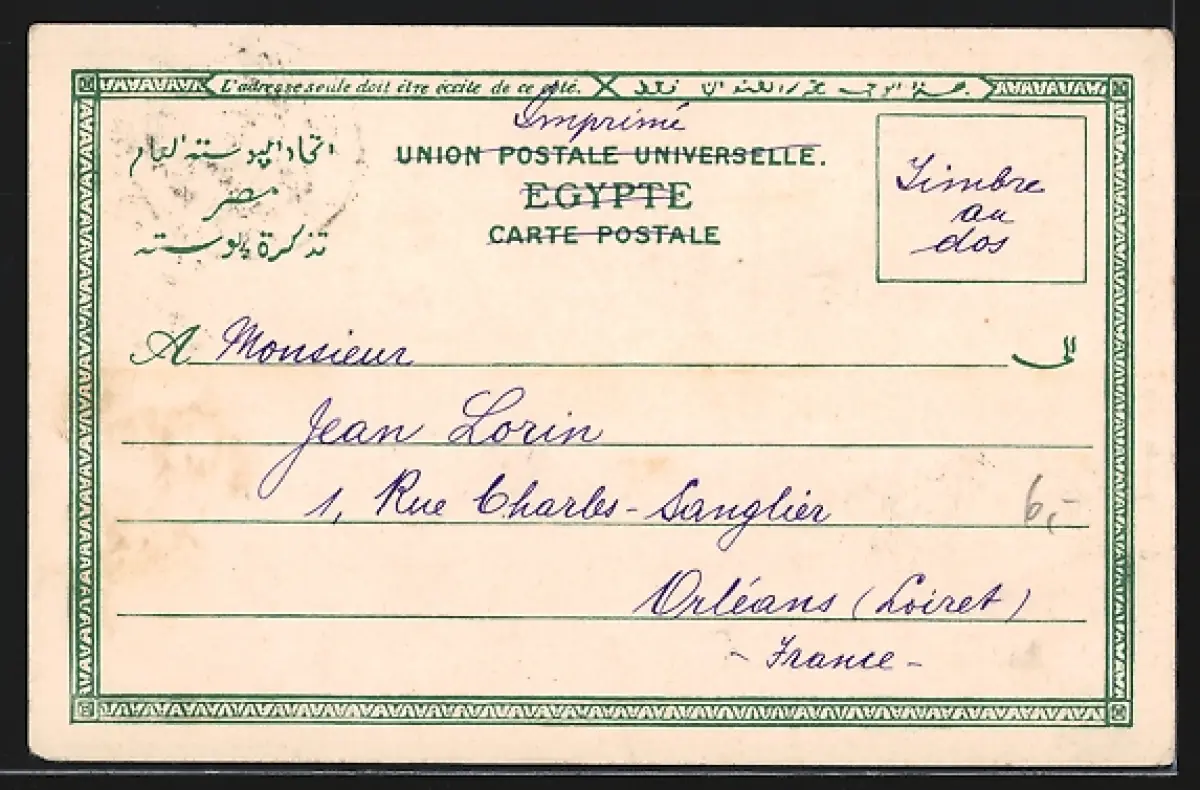 L'adresse seule doit être écrite de ce côté.
Imprimé
UNION POSTALE UNIVERSELLE.
EGYPTE
CARTE POSTALE
اتحاد البوسته العام
مصر
تذكرة بوسته
Timbre
au
dos
A Monsieur الى
Jean Lorin
1, Rue Charles-Sanglier
6,-
Orléans (Loiret)
- France -